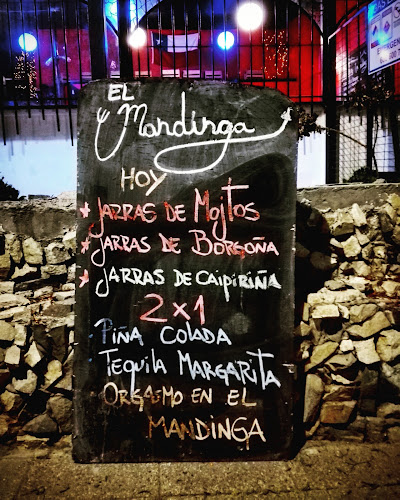 EL
Mandinga
HOY
★ JARRAS DE MOJITOS
★ JARRAS DE BORGOÑA
★ JARRAS DE CAIPIRIÑA
2x1
PIÑA COLADA
TEQUILA MARGARITA
ORGASMO EN EL
MANDINGA